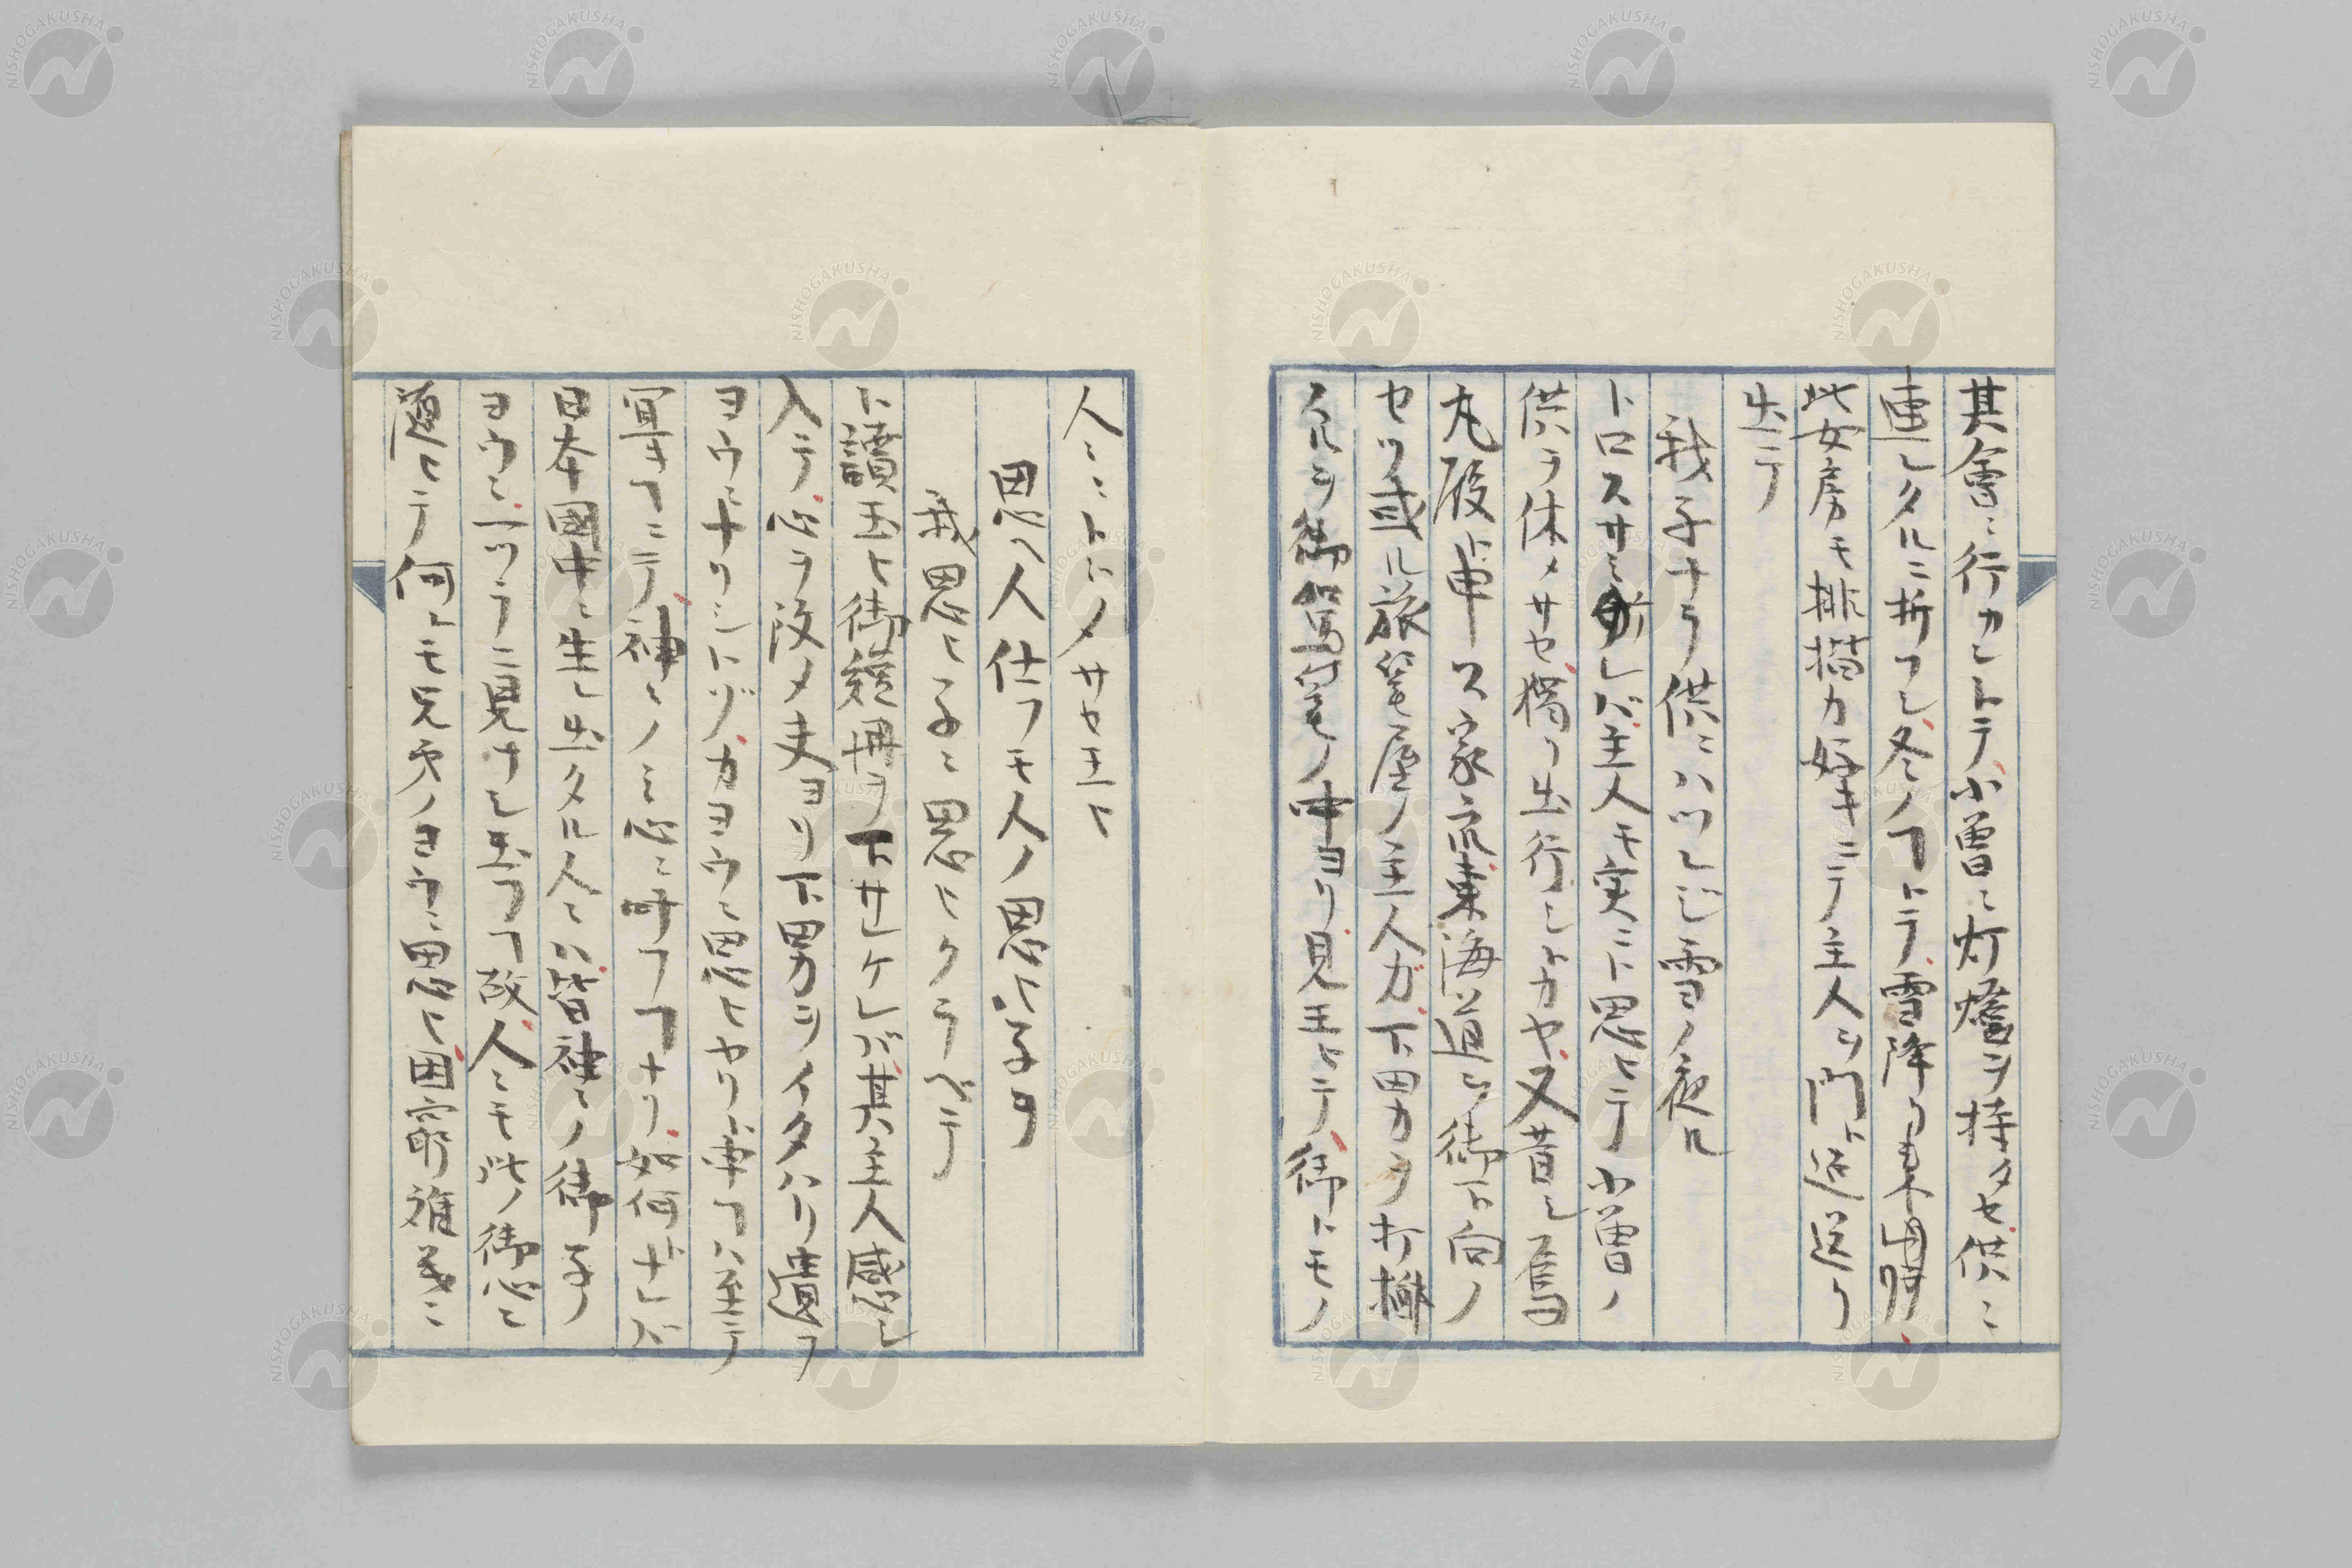 其會ニ行カントテ小曽ニ灯燈ヲ持タセ供ニ
連レタルニ折フシ冬ノヿトテ雪降リモ不得
此女房モ排諧カ好キニテ主人ヲ門ト近送リ
出テ
我子ナラ供ニハツレジ雪ノ夜ル
ト口スサミケレバ主人モ実ニト思ヒテ小曽ノ
供ヲ休メサセ獨リ出行シトカヤ又昔シ烏
丸殿ト申ス家京東海道ヲ御下向ノ
セツ或ル旅篭屋ノ主人ガ下男ヲ打擲
スルヲ御駕篭ノ中ヨリ見玉ヒテ御トモノ
人ニトドメサセ玉ヒ
思ハ人仕フモ人ノ思ヒ子ヲ
我思ヒ子ニ思ヒクラベテ
ト讀玉ヒ御短冊ヲ下サレケレバ其主人感心シ
入テ心ヲ改メ夫ヨリ下男ヲイタハリ遣フ
ヨウニナリシトゾカヨウニ思ヒヤリト申ヿハ至テ
尊キヿニテ神ニノミ心ニ叶フヿナリ如何ナレバ
日本國中ニ生レ出タル人ニハ皆神ニノ御子ノ
ヨウニ一ツラニ見ナシ玉フヿ故人ニモ此ノ御心ニ
随ヒテ何レモ兄弟ノヨウニ思ヒ困窮難義ニ